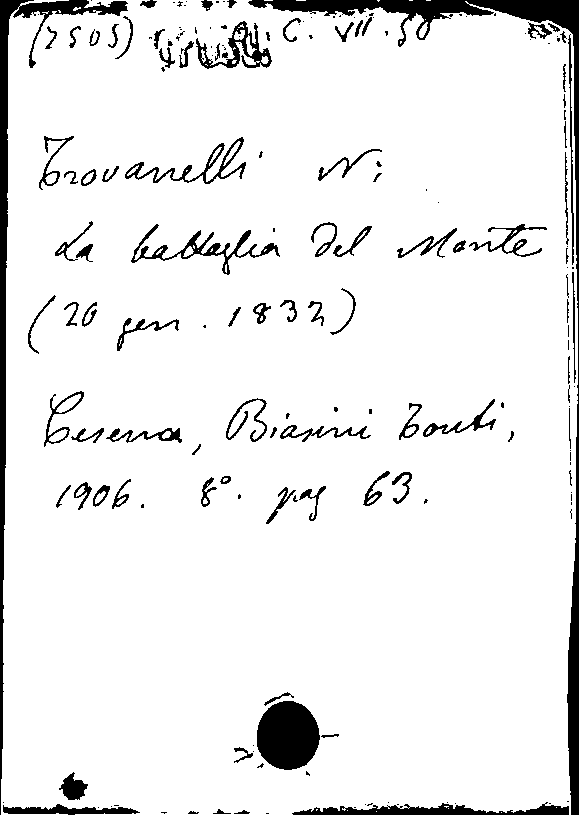 (2505) C. VII. 50
Trovanelli N:
La battaglia del Monte
(20 gen. 1832)
Cesena, Biasini Tonti,
1906. 8°. pag 63.